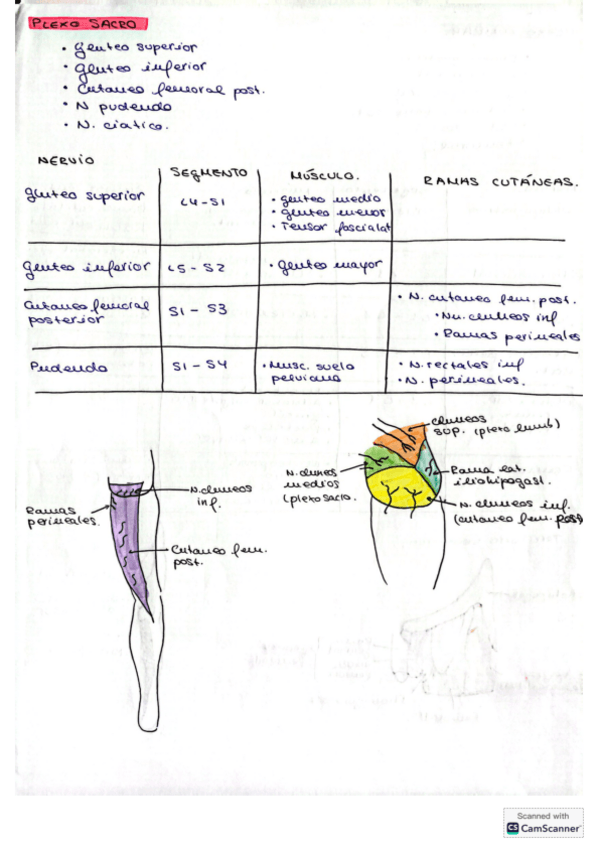 PLEXO SACRO
• Gluteo superior
• Gluteo inferior
• Cutaneo femoral post.
• N pudendo
• N. ciatico.
NERVIO
SEGMENTO
MÚSCULO.
RAMAS CUTÁNEAS.
Gluteo superior
L4-S1
• Gluteo medio
• Gluteo menor
• Tensor fascia lat
Gluteo inferior
L5 - S2
• Gluteo mayor
Cutaneo femoral
posterior
S1 - S3
• N. cutaneo fem. post.
• Nn. cluneos inf
• Ramas perineales
Pudendo
S1 - S4
• Musc. suelo
pelviano
• N. rectales inf
• N. perineales.
Cluneos
sup. (plexo lumb)
N. cluneos
medios
(plexo sacro.
Rama lat.
iliohipogast.
N. cluneos inf.
(cutaneo fem. post)
N. cluneos
inf.
Ramas
perineales.
Cutaneo fem.
post.
Scanned with
CS CamScanner